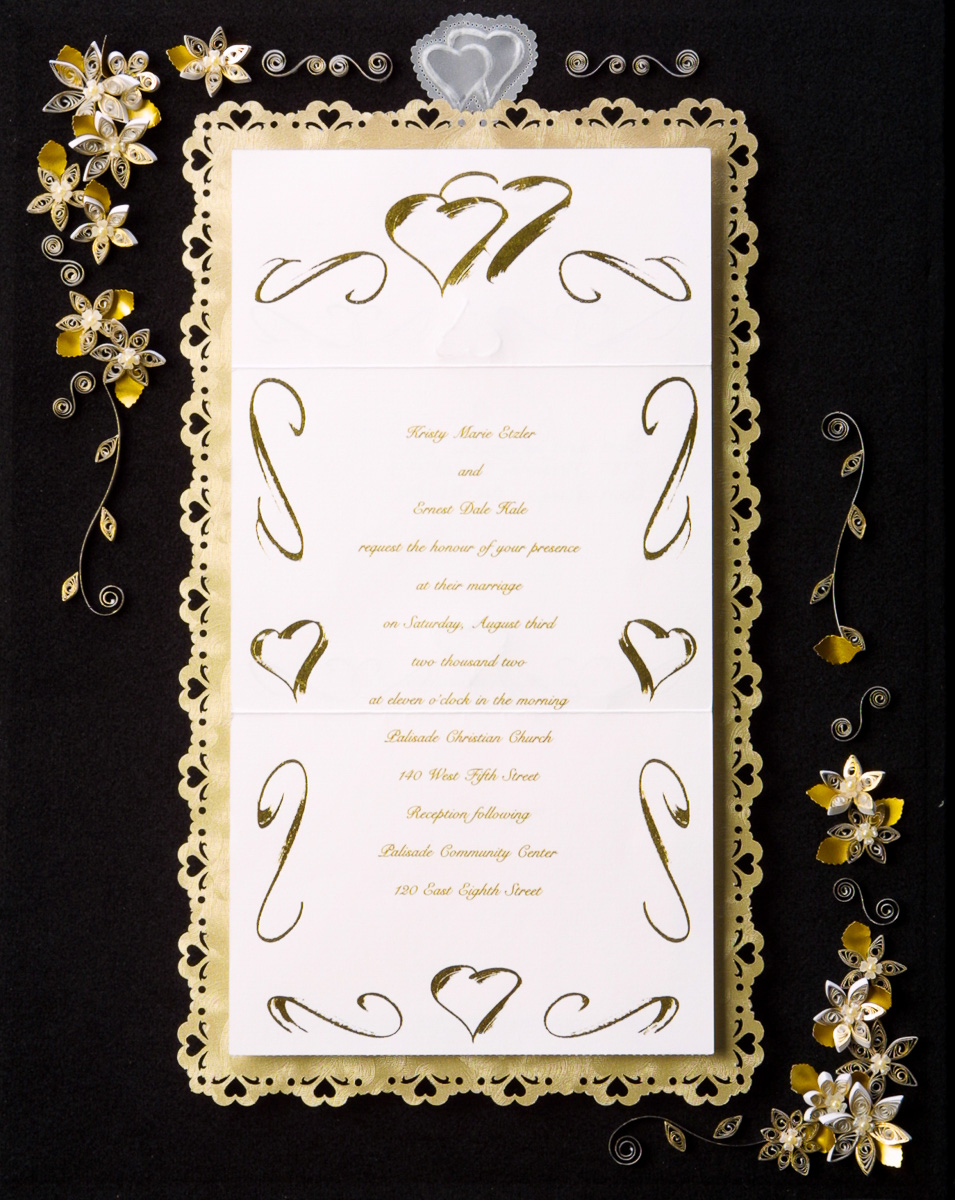 Kristy Marie Etzler
and
Ernest Dale Kale
request the honour of your presence
at their marriage
on Saturday, August third
two thousand two
at eleven o'clock in the morning
Palisade Christian Church
140 West Fifth Street
Reception following
Palisade Community Center
120 East Eighth Street